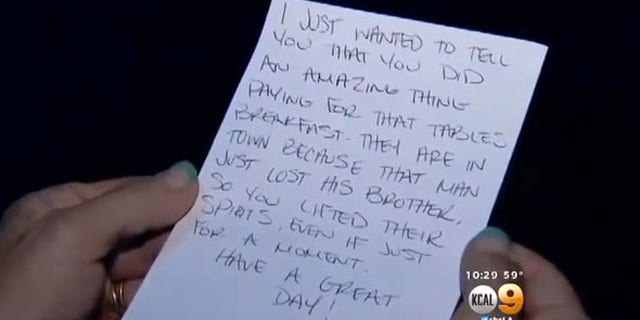 I JUST WANTED TO TELL
YOU THAT YOU DID
AN AMAZING THING
PAYING FOR THAT TABLES
BREAKFAST. THEY ARE IN
TOWN BECAUSE THAT MAN
JUST LOST HIS BROTHER.
SO YOU LIFTED THEIR
SPIRTS, EVEN IF JUST
FOR A MOMENT.
HAVE A GREAT
DAY!
10:29 59°
KCAL 9